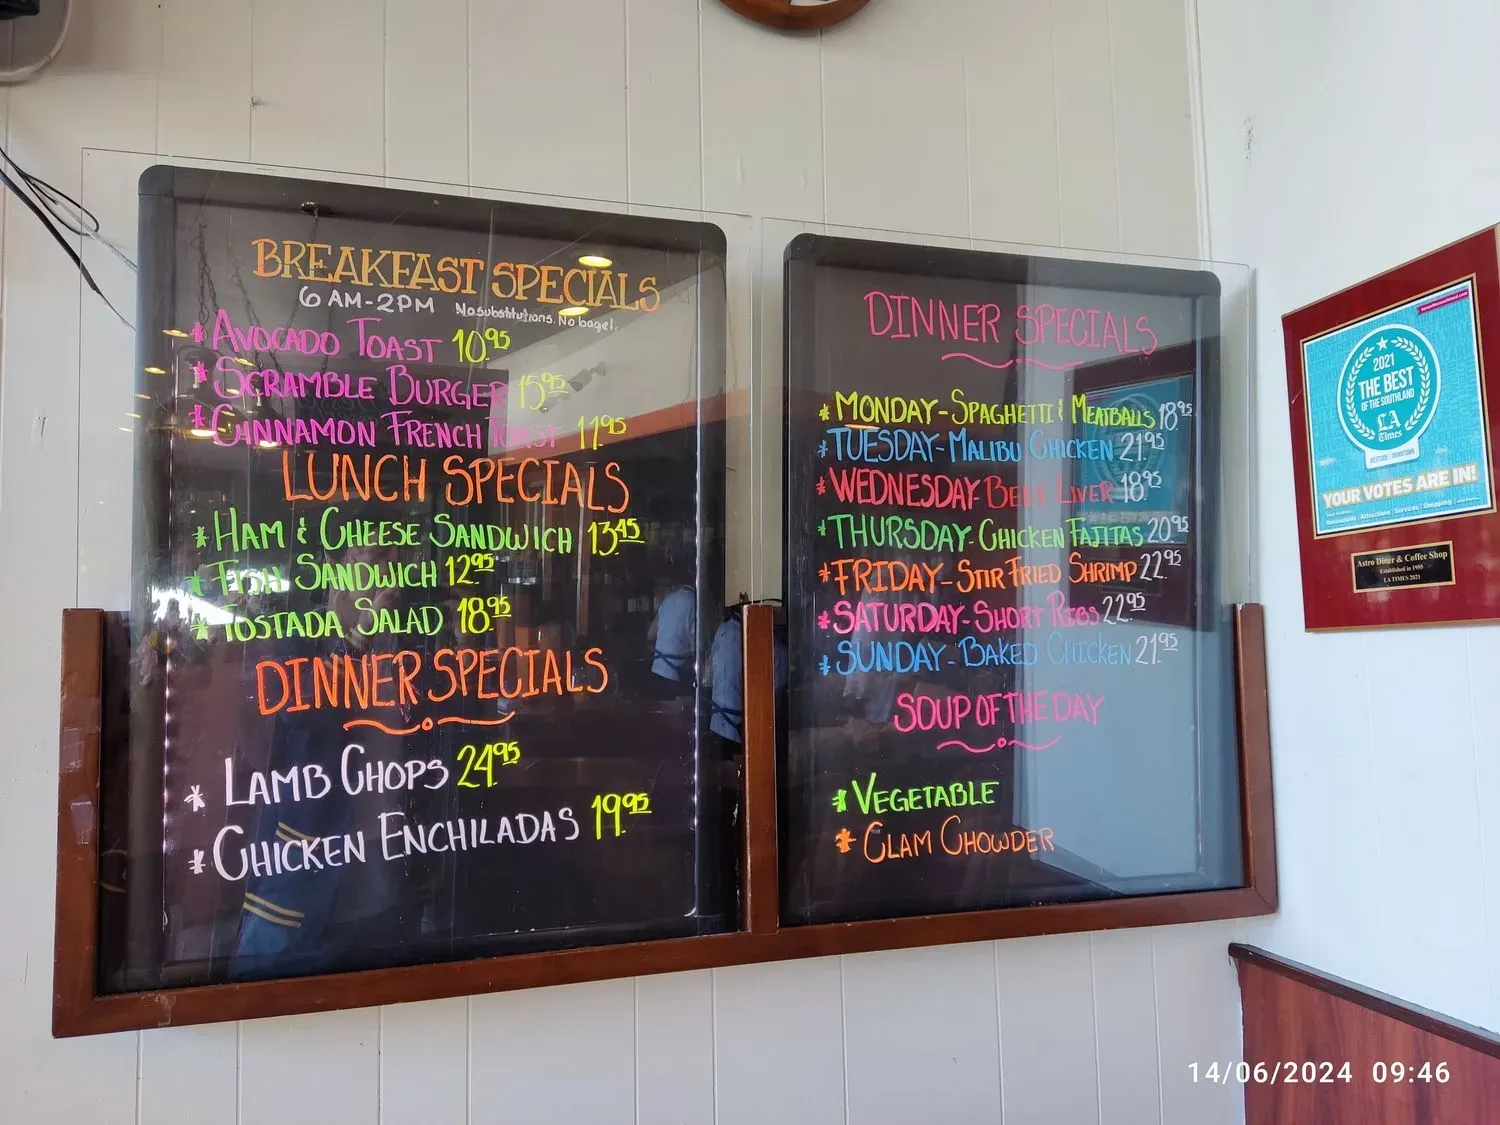 BREAKFAST SPECIALS
6 AM-2PM No substitutions. No bagel.
* AVOCADO TOAST 10.95
* SCRAMBLE BURGER 15.95
* CINNAMON FRENCH TOAST 11.95
LUNCH SPECIALS
* HAM & CHEESE SANDWICH 13.45
* FISH SANDWICH 12.95
* TOSTADA SALAD 18.95
DINNER SPECIALS
* LAMB CHOPS 24.95
* CHICKEN ENCHILADAS 19.95
DINNER SPECIALS
* MONDAY-SPAGHETTI & MEATBALLS 18.95
* TUESDAY-MALIBU CHICKEN 21.95
* WEDNESDAY-BEEF LIVER 18.95
* THURSDAY-CHICKEN FAJITAS 20.95
* FRIDAY-STIR FRIED SHRIMP 22.95
* SATURDAY-SHORT RIBS 22.95
* SUNDAY-BAKED CHICKEN 21.95
SOUP OF THE DAY
* VEGETABLE
* CLAM CHOWDER
2021
THE BEST
OF THE SOUTHLAND
LA
Times
WESTSIDE / DOWNTOWN
YOUR VOTES ARE IN!
Restaurants | Attractions | Services | Shopping
Astro Diner & Coffee Shop
Established in 1955
LA TIMES 2021
14/06/2024 09:46